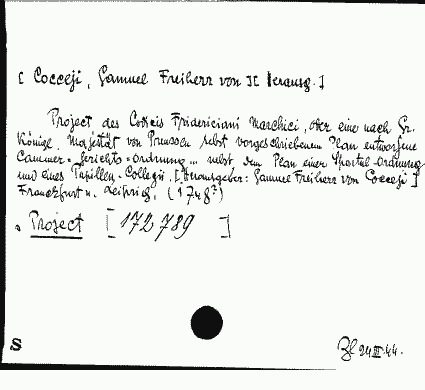 [ Cocceji, Samuel Freiherr von ] [ Herausg. ]
Project des Codicis Fridericiani Marchici, oder eine nach Sr.
Königl. Majestät von Preussen selbst vorgeschriebenem Plan entworfene
Cammer-Gerichts-Ordnung... nebst dem Plan einer Sportul-Ordnung
und eines Pupillen-Collegii. [Herausgeber: Samuel Freiherr von Cocceji]
Franckfurt u. Leipzig. (1748?)
Project [ 172 789 ]
S
24 III 44.